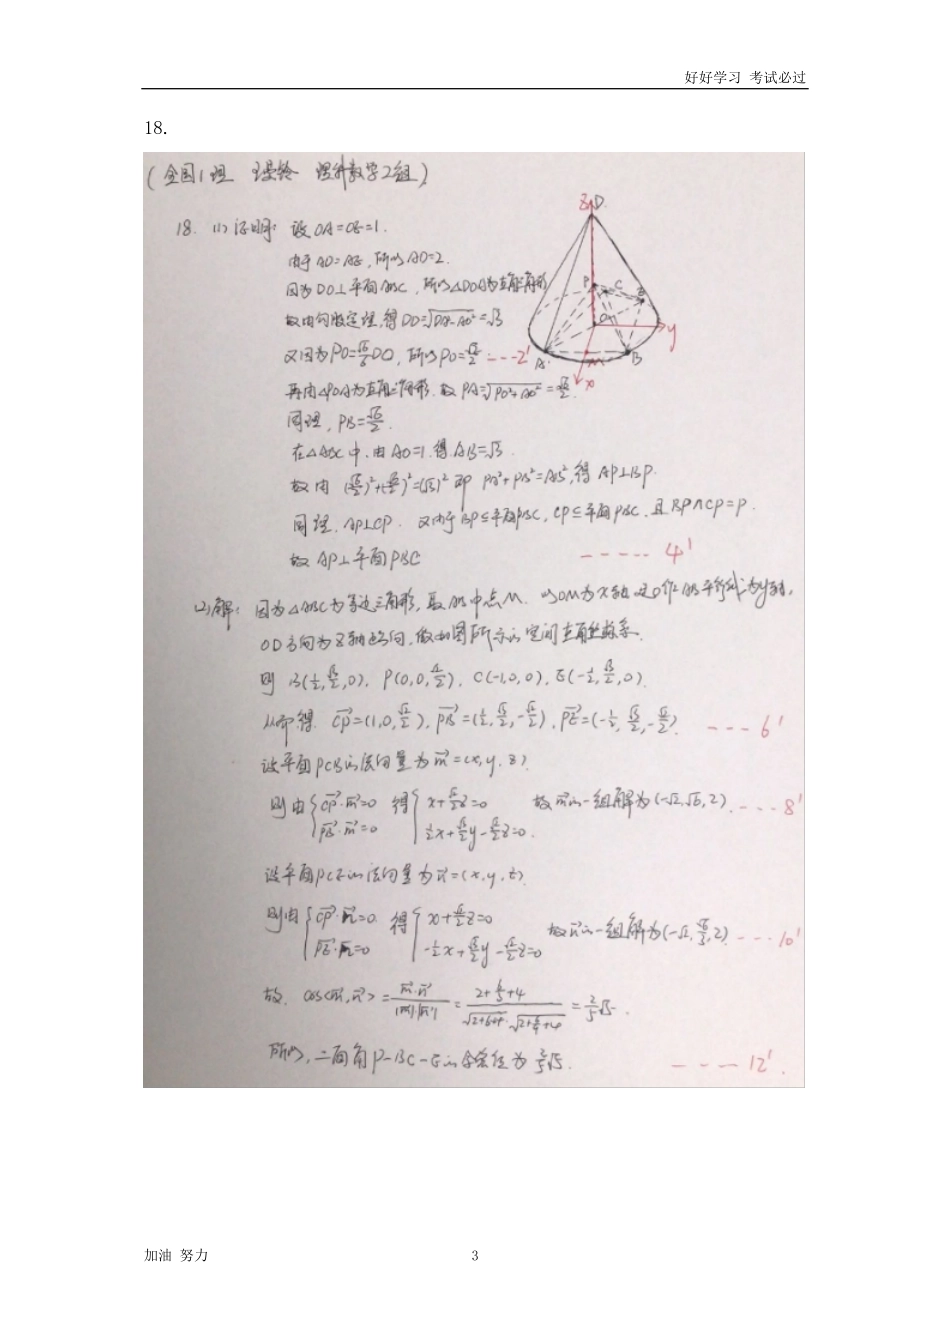 好好学习 考试必过
18.
(全国1理 理科数学2组)
18. (1) 证明: 设 OA=OE=1.
由于 AD=AE, 所以 AD=2.
因为 DO⊥平面ABC, 所以△DOA为直角三角形
故由勾股定理,得 DO=√(DA²-AO²)=√3
又因为 PO=√6/6 DO, 所以 PO=√2/2 ---2'
再由△POA为直角三角形, 故 PA=√(PO²+AO²)=√6/2.
同理, PB=√6/2.
在△ABC中,由 AO=1. 得 AB=√3.
故由 (√6/2)²+(√6/2)²=(√3)² 即 PA²+PB²=AB², 得 AP⊥BP.
同理, AP⊥CP. 又由于 BP⊆平面PBC, CP⊆平面PBC, 且 BP∩CP=P.
故 AP⊥平面PBC ----- 4'
(2)解: 因为△ABC为等边三角形, 取AB中点M. 以OM为x轴 过O作AB平行线为y轴,
OD方向为z轴正方向, 做如图所示的空间直角坐标系.
则 B(1/2,√3/2,0), P(0,0,√2/2), C(-1,0,0), E(-1/2,√3/2,0).
从而得 CP=(1,0,√2/2), PB=(1/2,√3/2,-√2/2), PE=(-1/2,√3/2,-√2/2) ---6'
设平面PCB的法向量为 m=(x,y,z).
则由 {CP·m=0 得 {x+√2/2z=0 故m的一组解为(-√2,√6,2). ---8'
PB·m=0 1/2x+√3/2y-√2/2z=0.
设平面PCE的法向量为 n=(x,y,z).
则由 {CP·n=0 得 {x+√2/2z=0 故n的一组解为(-√2,√6/3,2) ---10'
PE·n=0 -1/2x+√3/2y-√2/2z=0
故. cos<m,n>=m·n/|m|·|n|=
=2/5√5.
所以, 二面角P-BC-E的余弦值为2/5√5. ----12'.
z D
P C E
O y
A M B
x
加油 努力 3